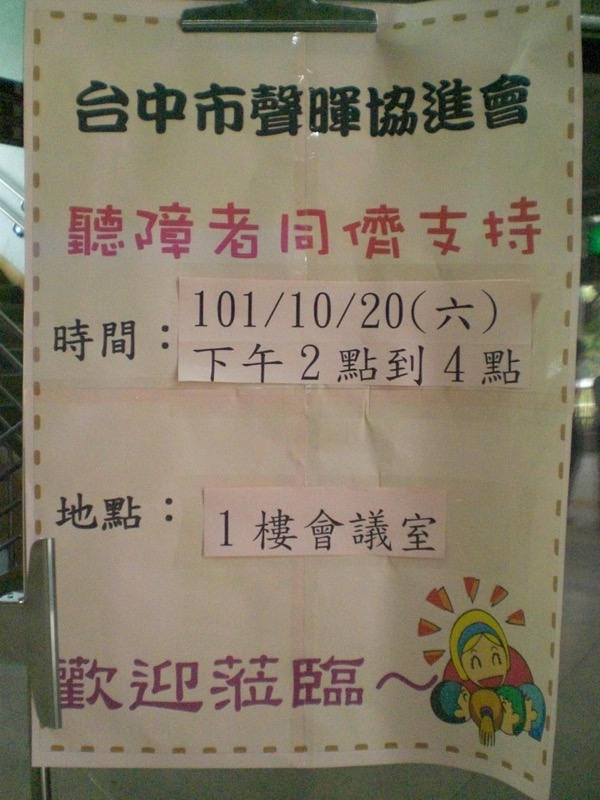 台中市聲暉協進會
聽障者同儕支持
時間：101/10/20(六)
下午2點到4點
地點：1樓會議室
歡迎蒞臨～